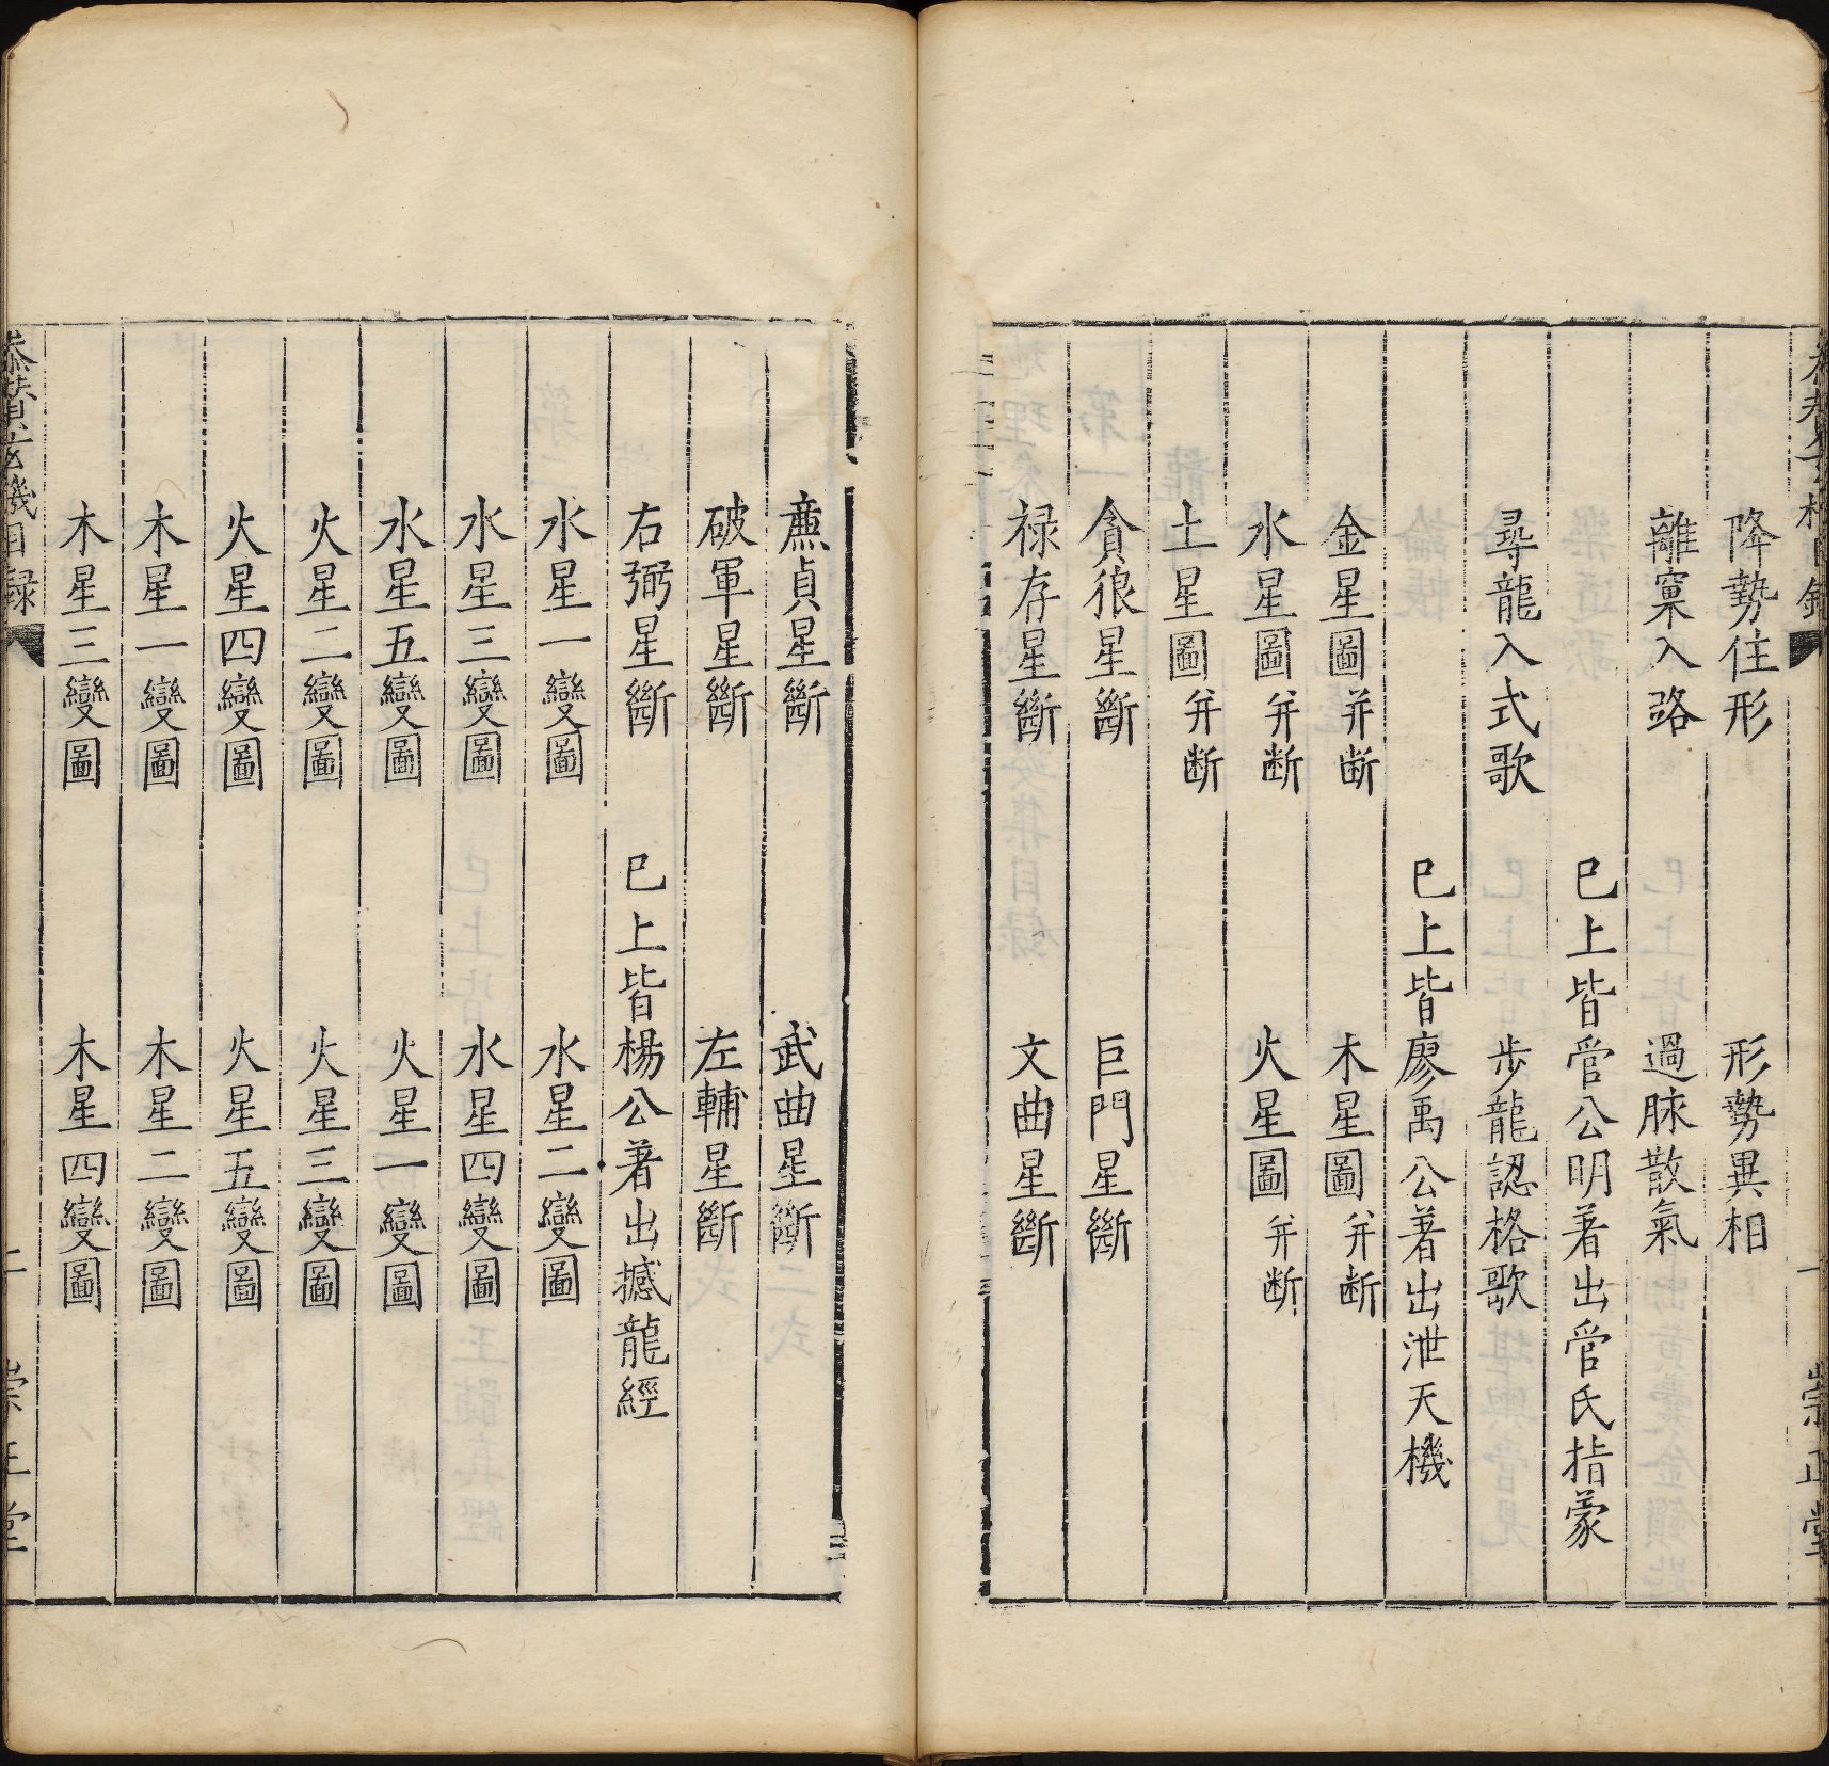 降勢住形　形勢異相
離窠入路　過脉散氣
已上皆管公明著出管氏指蒙
尋龍入式歌　步龍認格歌
已上皆廖禹公著出泄天機
金星圖并断　木星圖并断
水星圖并断　火星圖并断
土星圖并断
貪狼星斷　巨門星斷
禄存星斷　文曲星斷
廉貞星斷　武曲星斷
破軍星斷　左輔星斷
右弼星斷　已上皆楊公著出撼龍經
水星一變圖　水星二變圖
水星三變圖　水星四變圖
水星五變圖　火星一變圖
火星二變圖　火星三變圖
火星四變圖　火星五變圖
木星一變圖　木星二變圖
木星三變圖　木星四變圖
玄機目録　二　崇正堂